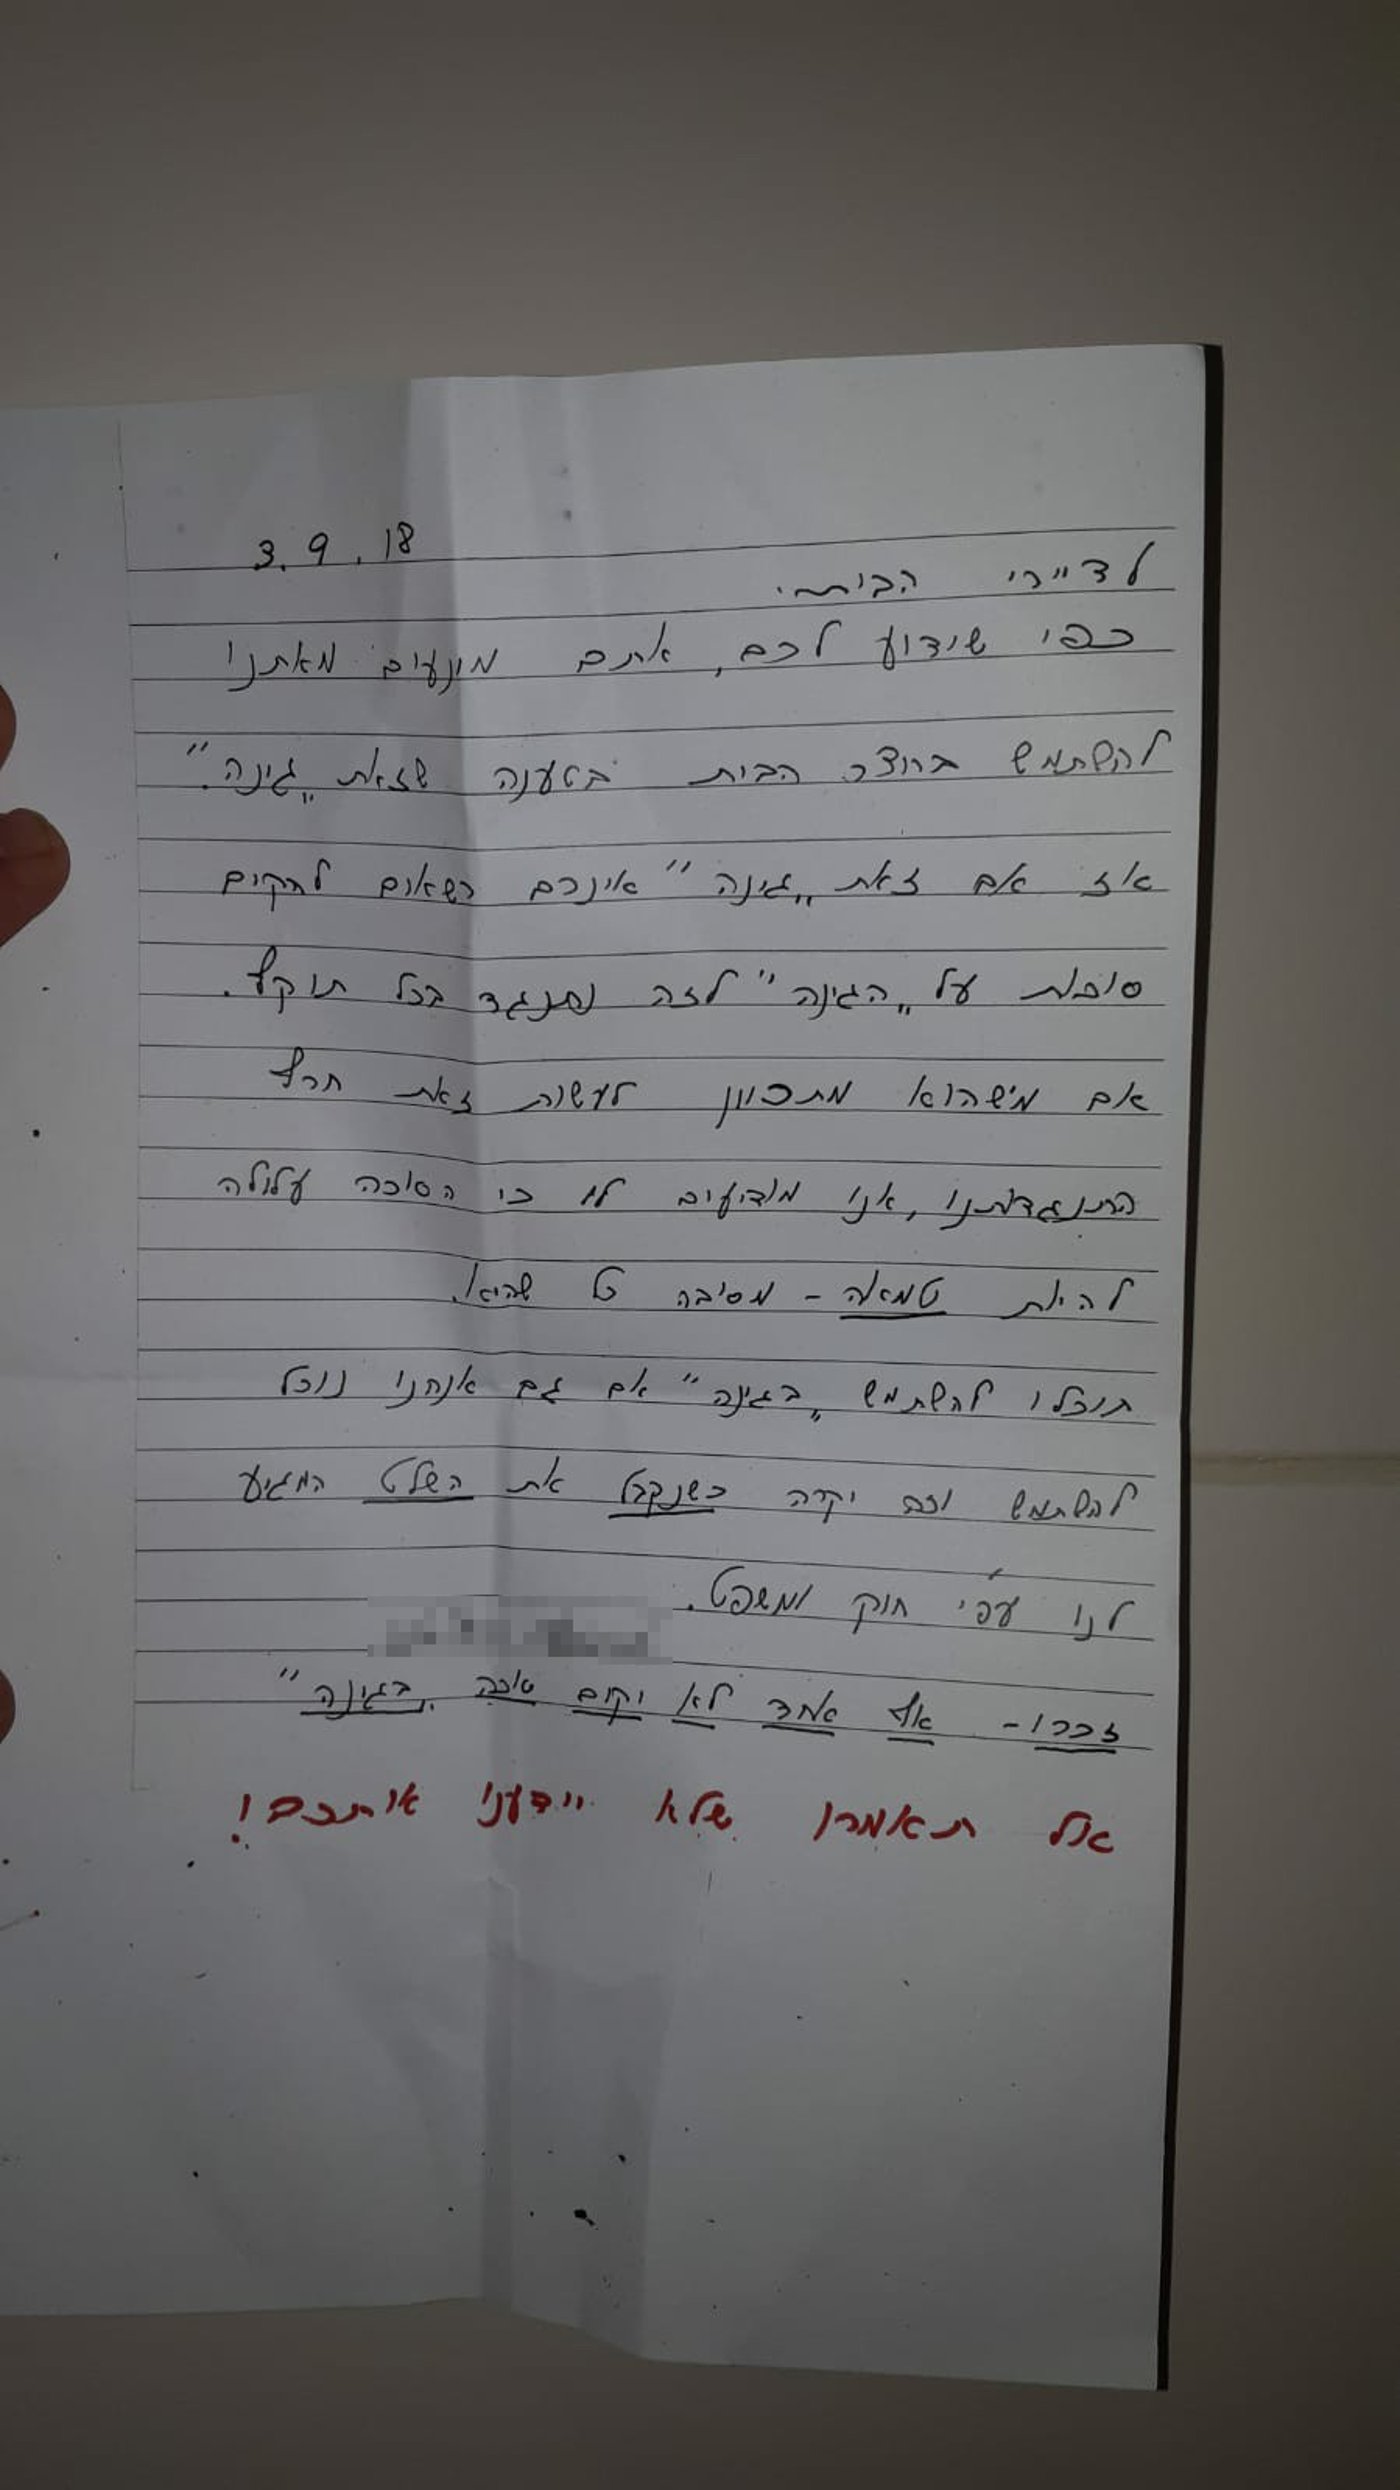 3.9.18
לדיירי הבית.
כפי שידוע לכם, אתם מונעים מאתנו
להשתמש בחצר הבית בטענה שזאת „גינה".
אז אם זאת „גינה" אינכם רשאים להקים
סוכות על „הגינה" לזה נתנגד בכל תוקף.
אם מישהוא מתכוון לעשות זאת חרף
התנגדותנו, אנו מודיעים לו כי הסוכה עלולה
להיות טמאה - מסיבה כל שהיא.
תוכלו להשתמש „בגינה" אם גם אנחנו נוכל
להשתמש וזה יקרה כשנקבל את השלט המגיע
לנו עפ"י חוק ומשפט.
זכרו - אף אחד לא יקים סוכה „בגינה"
אל תאמרו שלא יידענו אתכם!